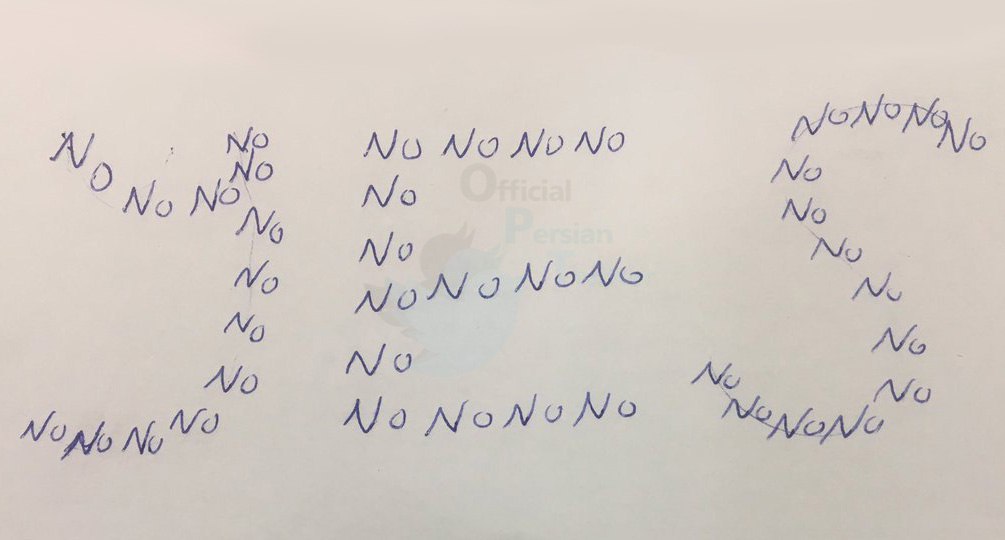 No No No No No No No No No No
No No No
Official
No No No
Persian
No No No
No No No No No No
No No No
No No No
No No No No No No No No No No No